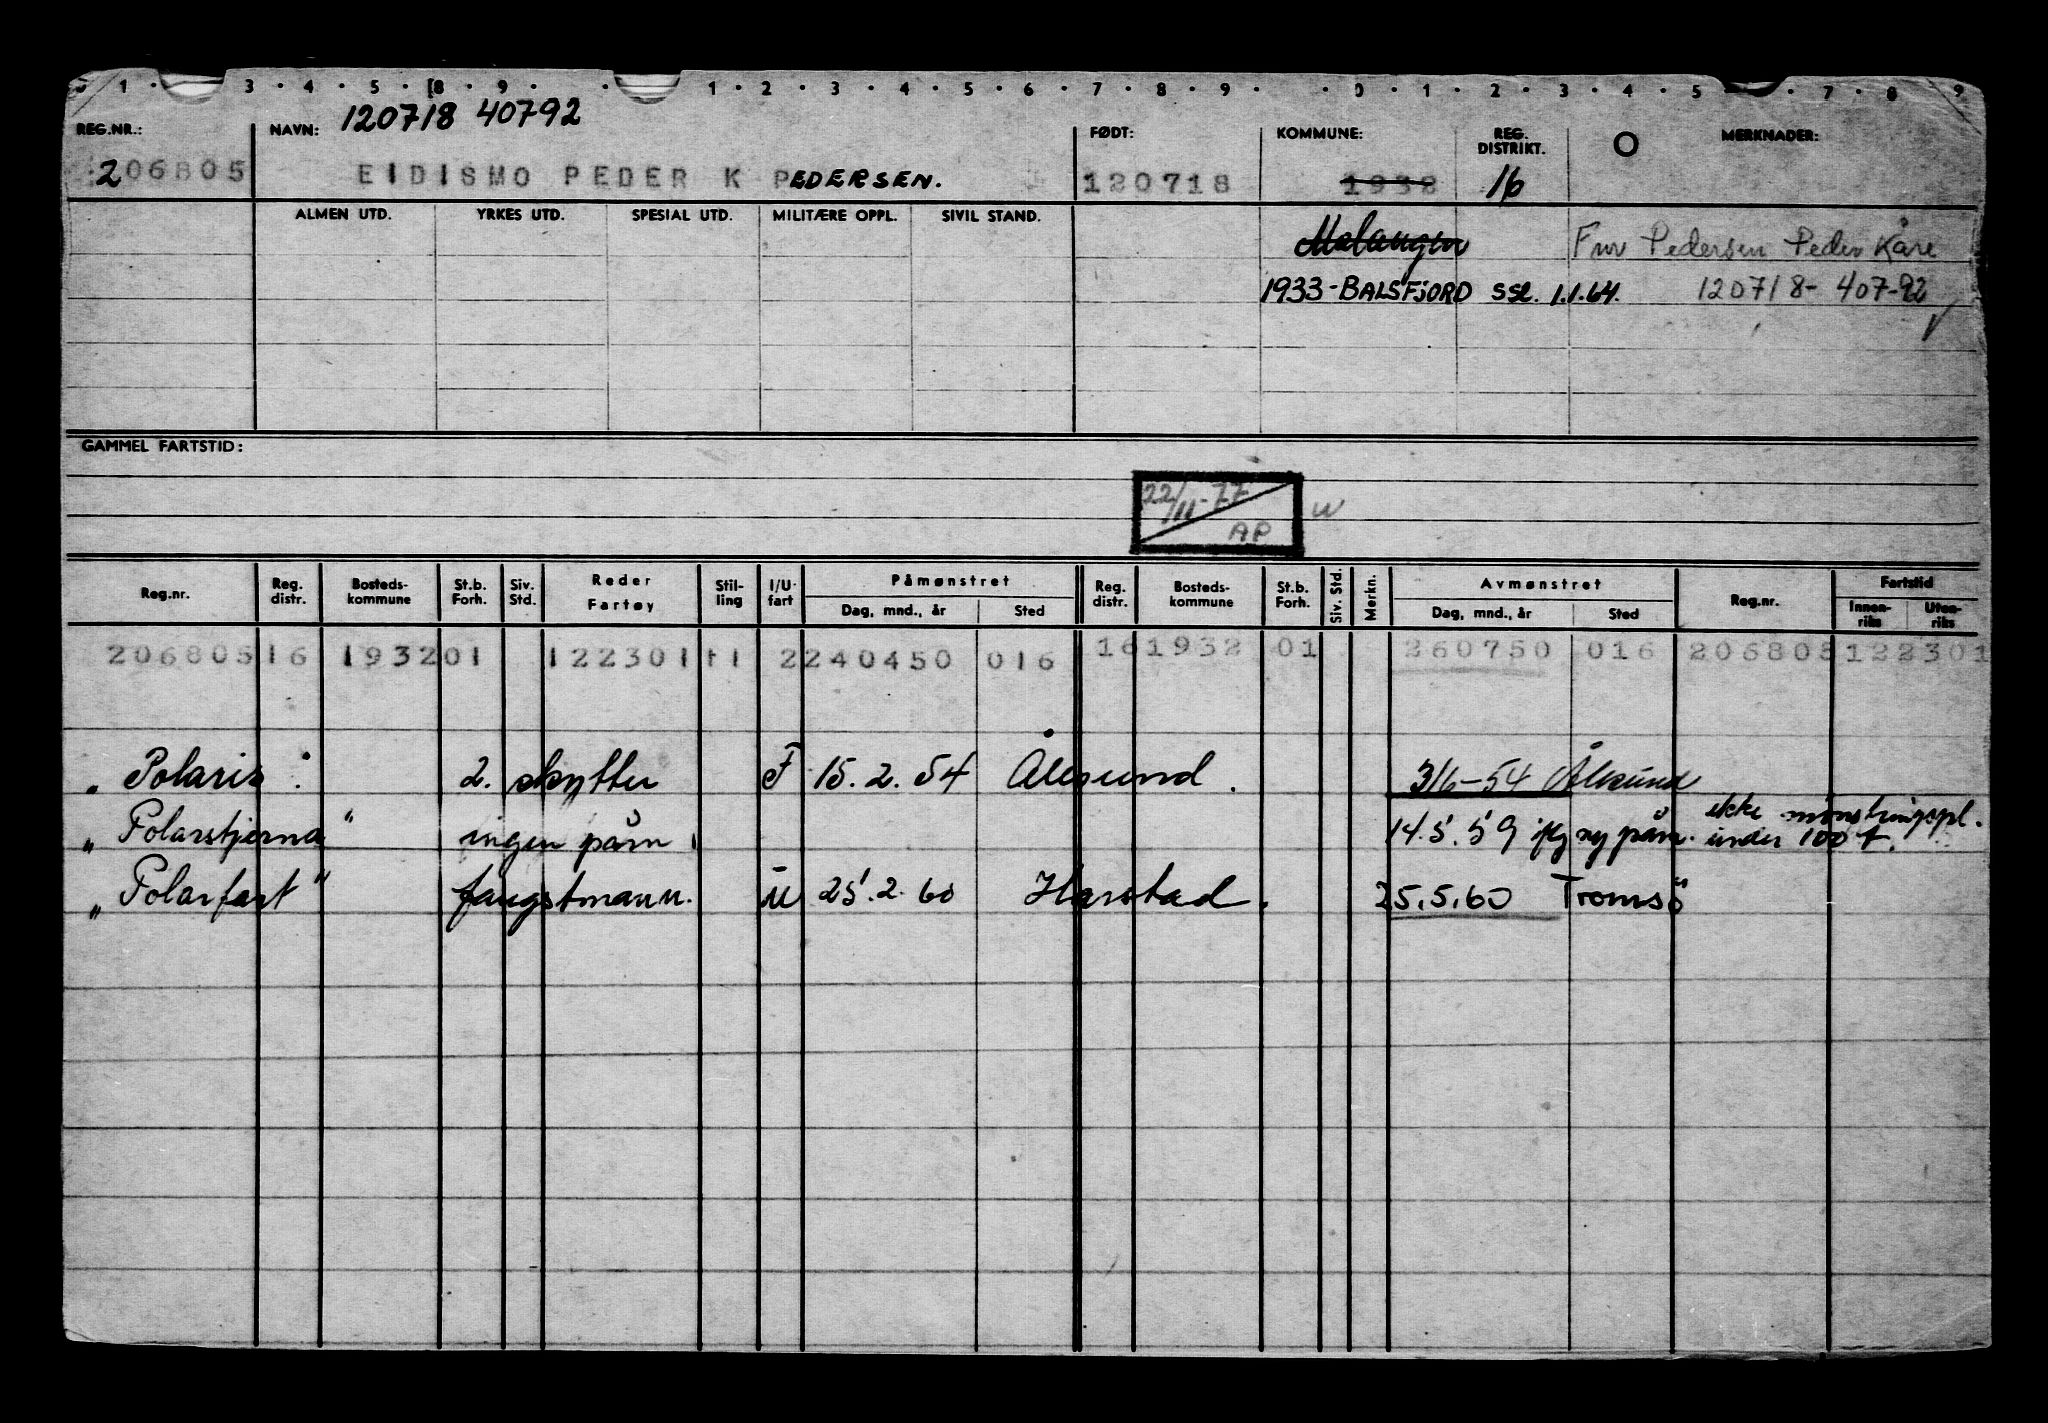 1 · 3 · 4 · 5 · 8 · 9 · · 1 · 2 · 3 · 4 · 5 · 6 · 7 · 8 · 9 · · 0 · 1 · 2 · 3 · 4 · 5 · 7 · 8 · 9
120718 40792
REG.NR.: NAVN: FØDT: KOMMUNE: REG. DISTRIKT. O MERKNADER:
206805 EIDISMO PEDER K PEDERSEN. 120718 1932 16
ALMEN UTD. YRKES UTD. SPESIAL UTD. MILITÆRE OPPL. SIVIL STAND.
Malangen Fnr Pedersen Peder Kåre
1933-BALSFJORD SSL. 1.1.64. 120718-407-92
GAMMEL FARTSTID:
22/11-77
AP
Reg.nr. Reg. distr. Bosteds-kommune St.b. Forh. Siv. Std. Reder Fartøy Stil-ling I/U-fart Påmønstret Reg. distr. Bosteds-kommune St.b. Forh. Siv. Std. Merkn. Avmønstret Reg.nr. Fartstid
Dag, mnd., år Sted Dag, mnd., år Sted Innen-riks Uten-riks
206805 16 1932 01 122301 11 2 240450 016 16 1932 01 260750 016 206805 122301
„Polaris" 2. skytter F 15.2.54 Ålesund. 3/6-54 Ålesund
„Polarstjerna" ingen påm. 14.5.59 iflg ny påm. ikke mønstringspl. under 100 t.
„Polarfart" fangstmann. U 25.2.60 Harstad. 25.5.60 Tromsö